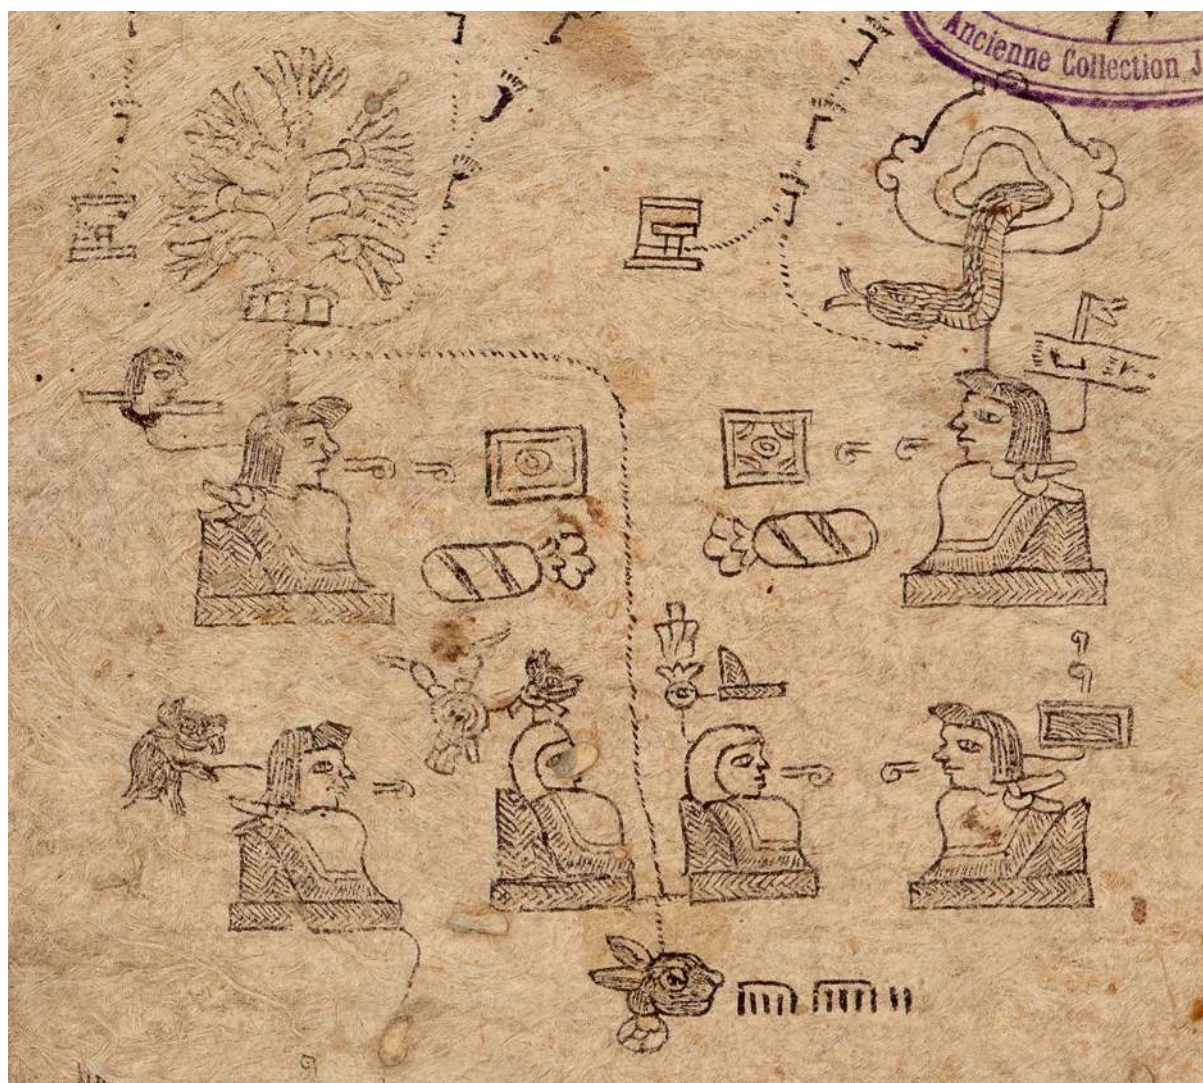 Ancienne Collection J